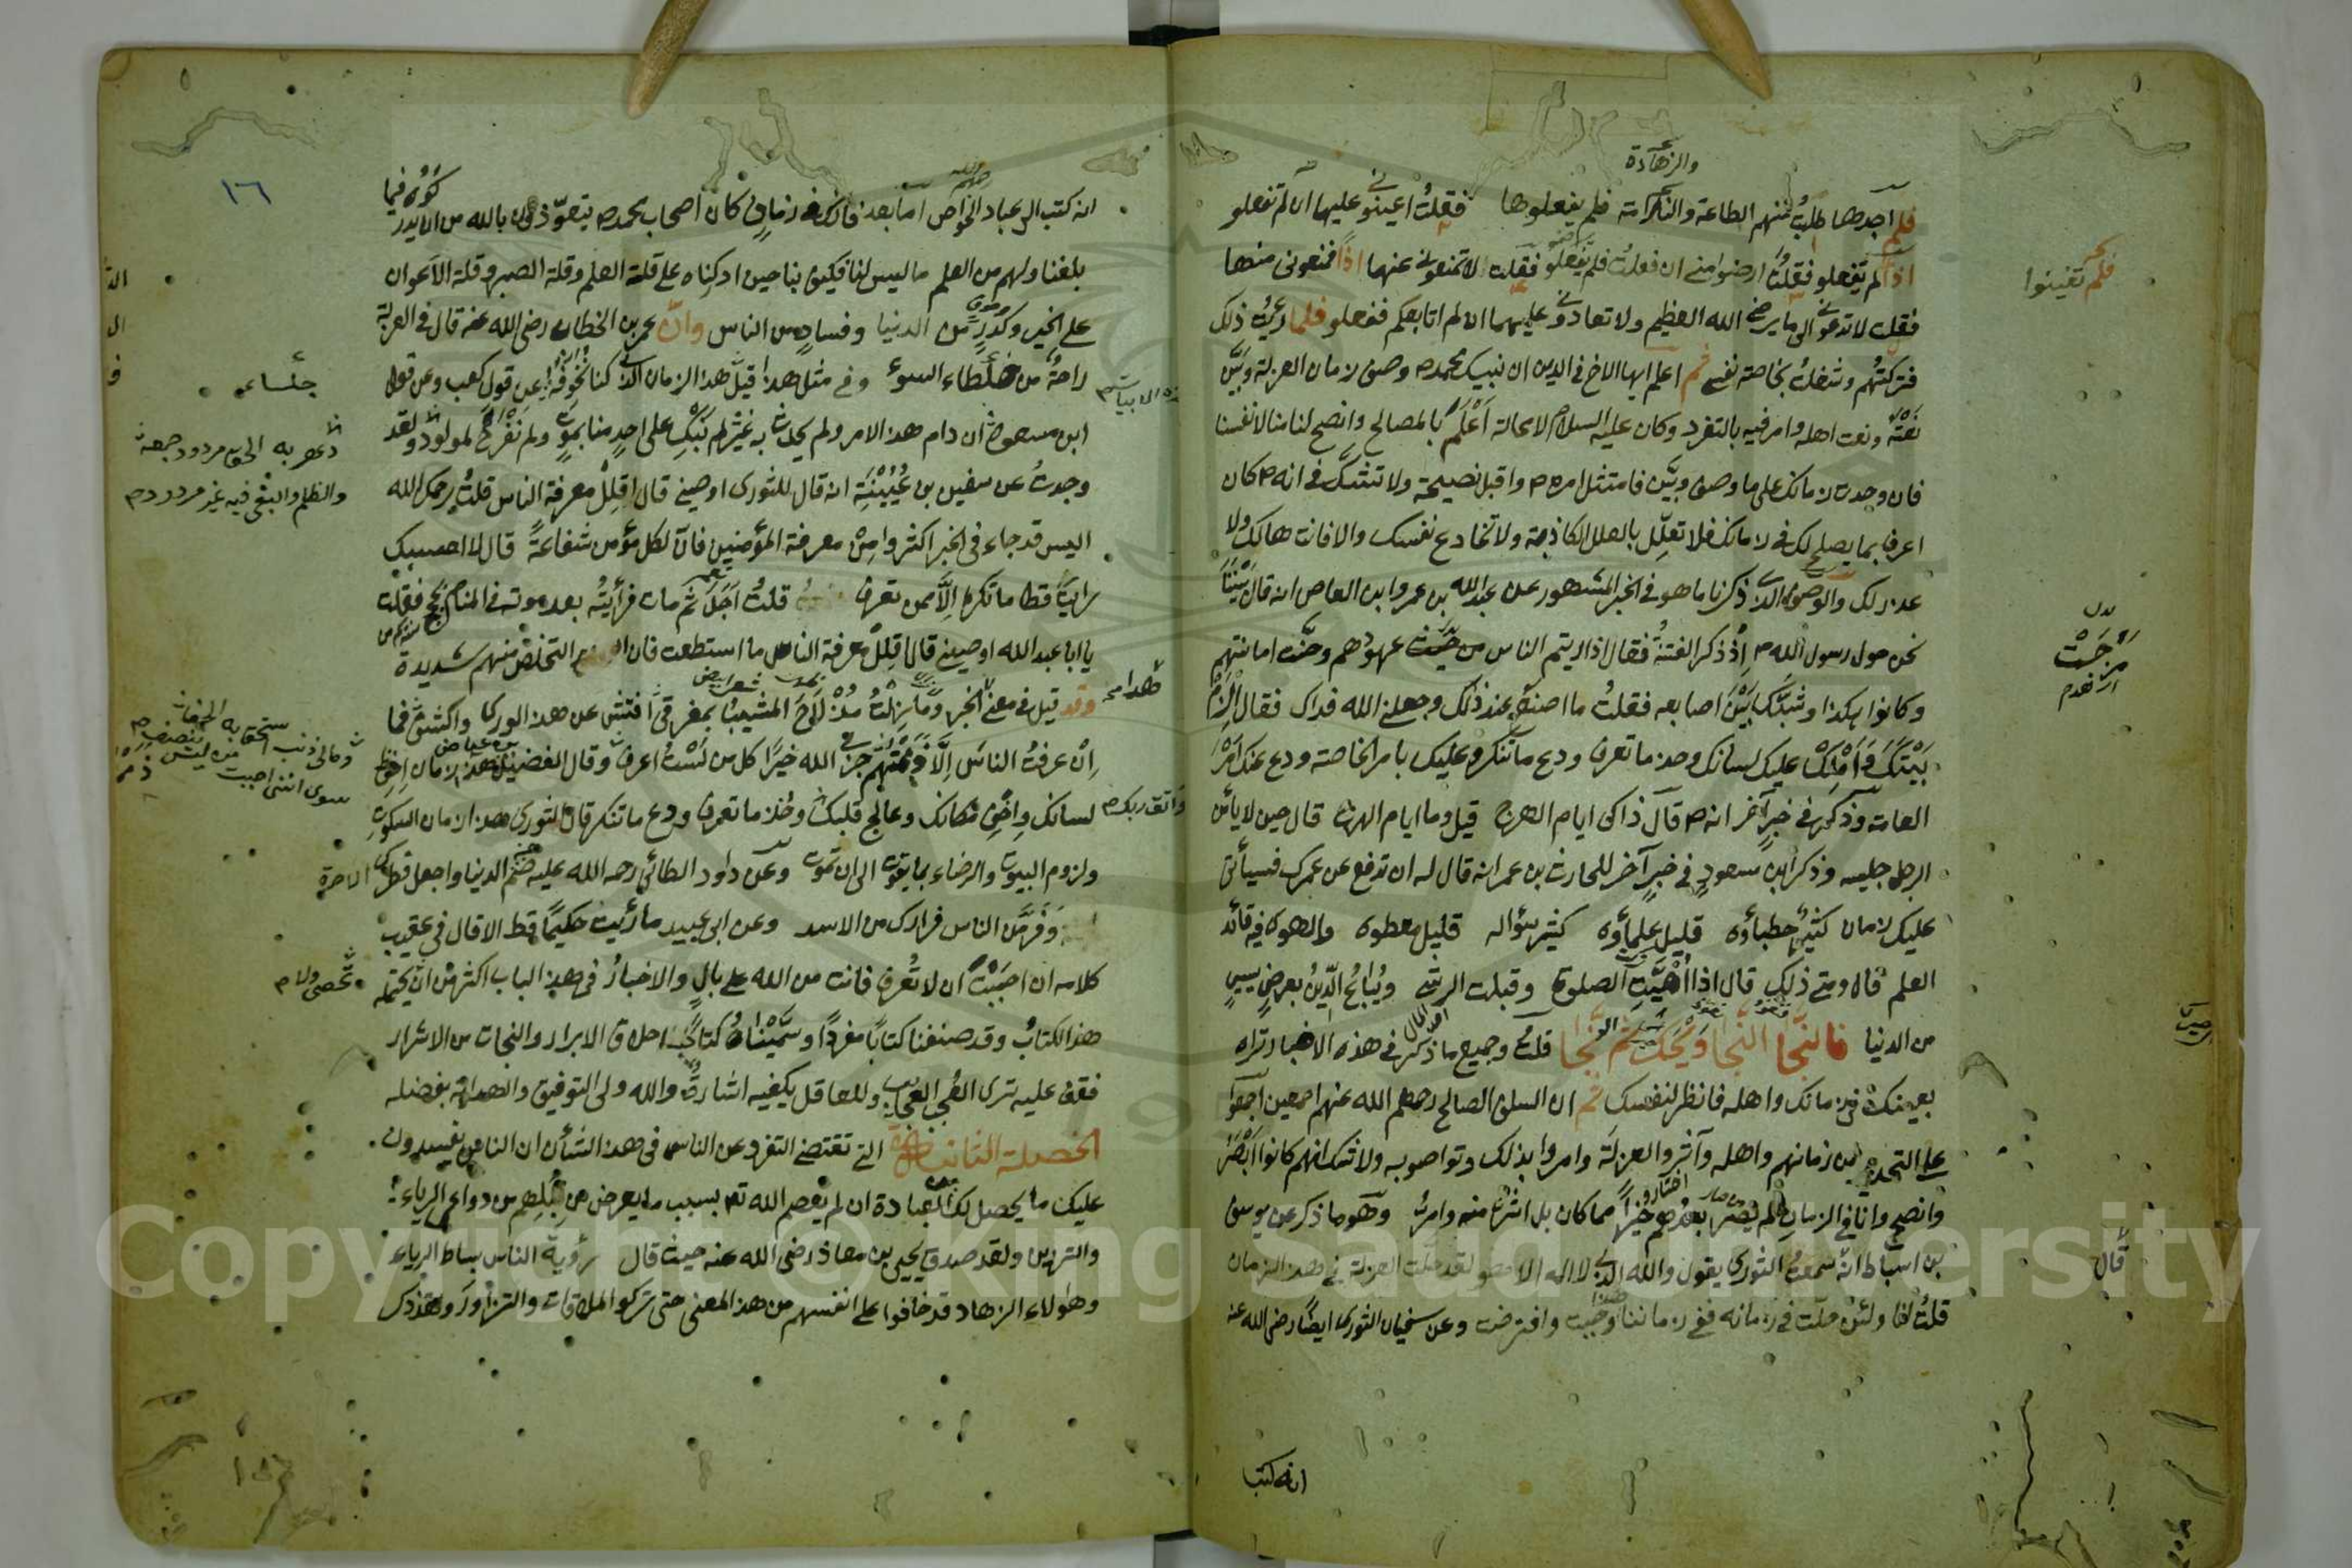 والزهادة
فلم اجدها طلبت منهم الطاعة والكرامة فلم يفعلوها فقلت اعينوني عليها ان لم تفعلو
اذا لم تفعلو فقلت ارضوا مني ان فعلت فلم تفعلو فقلت لا تمنعوني عنها اذا فمنعوني منها
فلم تعينوا
فقلت لا تدعوني الى ما يرضي الله العظيم ولا تعادوني عليهما ان لم اتابعكم ففعلو فلما رئيت ذلك
فتركتهم وشغلت بخاصة نفسي ثم اعلم ايها الاخ في الدين ان نبيك محمد وصف زمان العزلة وبين
نعته ونعت اهله وامر فيه بالتفرد وكان عليه السلام لا محالة اعلم بالمصالح وانصح لنا منا لانفسنا
فان وجدت زمانك على ما وصف وبين فامتثل امره واقبل نصيحته ولا تشك في انه كان
اعرف بما يصلح لك في زمانك فلا تعلل بالعلل الكاذبة ولا تخادع نفسك والا فانت هالك ولا
عذر لك والوصف الذي ذكرنا ما هو في الخبر المشهور عن عبد الله بن عمرو ابن العاص انه قال بينا
نحن حول رسول الله اذ ذكر الفتنة فقال اذا رايتم الناس مرجت عهودهم وخفت امانتهم
بدل
مرجت
وكانوا هكذا وشبك بين اصابعه فقلت ما اصنع عند ذلك جعلني الله فداك فقال الزم
بيتك واملك عليك لسانك وخذ ما تعرف ودع ما تنكر وعليك بامر الخاصة ودع عنك امر
العامة وذكر في خبر آخر انه قال ذاكى ايام الهرج قيل وما ايام الهرج قال حين لا يأمن
الرجل جليسه وذكر ابن مسعود في خبر آخر للحارث بن عمر انه قال له ان تدفع عن عمرك فسيأتي
عليك زمان كثير خطباؤه قليل علماؤه كثير سؤاله قليل معطوه والهوى فيه قائد
العلم قال ومتى ذلك قال اذا اميتت الصلوة وقبلت الرشى ويباع الدين بعرض يسير
من الدنيا فالنجا النجا ويحك ثم النجا قلت وجميع ما ذكر في هذه الاخبار تراه
بعينك في زمانك واهله فانظر لنفسك ثم ان السلف الصالح رحمهم الله عنهم اجمعين اجمعوا
على التحذير من زمانهم واهله وآثروا العزلة وامروا بذلك وتواصو به ولا شك انهم كانوا ابصر
وانصح وان الزمان لم يصر بعدهم خيرا مما كان بل اشر منه وامر وهو ما ذكر عن يوسف
بن اسباط انه سمعت الثوري يقول والله الذي لا اله الا هو لقد حلت العزلة في هذا الزمان
قال
قلت انا ولئن حلت في زمانه ففي زماننا وجبت وافترضت وعن سفيان الثوري ايضا رضى الله عنه
انه كتب
١٦
انه كتب الى عباد الخواص اما بعد فانك في زمان كان اصحاب محمد يتعوذون بالله من ان يدركوه فيما
بلغنا ولهم من العلم ما ليس لنا فكيف بنا حين ادركناه على قلة العلم وقلة الصبر وقلة الاعوان
على الخير وكدر من الدنيا وفساد من الناس وان عمر بن الخطاب رضى الله عنه قال في العزلة
راحة من خلطاء السوء وفي مثل هذا قيل هذا الزمان الذي كنا نحذره عن قول كعب وعن قول
جلساء
ابن مسعود ان دام هذا الامر ولم يحدث به غير لم نبك على احد منا يموت ولم نفرح لمولود ولقد
دهر به الحق مردود جمعه
والظلم والبغى فيه غير مردود
وجدت عن سفين بن عيينة انه قال للثوري اوصني قال اقلل معرفة الناس قلت يرحمك الله
اليس قد جاء في الخبر اكثروا من معرفة المؤمنين فان لكل مؤمن شفاعة قال لا احسبك
رايت قط ما تكره الا ممن تعرف قلت اجل ثم مات فرأيته بعد موته في المنام فقلت
يا ابا عبد الله اوصيني قال اقلل معرفة الناس ما استطعت فان التخلص منهم شديدة
وقد قيل في معنى الخبر وما زلت مذ لاح المشيب بمفرقي افتش عن هذا الورى واكشف فما
ان عرفت الناس الا ذممتهم جزا الله خيرا كل من لست اعرف وقال الفضيل هذا زمان احفظ
ومالى ذنب استحق به الجفا
سوى اننى احببت من ليس ينصف
لسانك واخف مكانك وعالج قلبك وخذ ما تعرف ودع ما تنكر قال الثوري هذا زمان السكوت
ولزوم البيوت والرضاء بما يقوت الى ان تموت وعن داود الطائي رحمه الله عليه صم الدنيا واجعل فطرك الاخرة
وفر من الناس فرارك من الاسد وعن ابي عبيد ما رئيت حكيما قط الا قال في عقيب
كلامه ان احببت ان لا تعرف فانت من الله على بال والاخبار في هذا الباب اكثر من ان يحتمله
هذا الكتاب وقد صنفنا كتابا مفردا وسميناه كتاب اخلاق الابرار والنجات من الاشرار
فقف عليه ترى العجب العجاب وللعاقل يكفيه اشارة والله ولى التوفيق والهداية بفضله
الخصلة الثانية التي تقتضي التفرد عن الناس في هذا الشأن ان الناس يفسدون
عليك ما يحصل لك العبادة ان لم يعصم الله تعه بسبب ما يعرض من قبلهم من دواعي الرياء
والتزين ولقد صدق يحيى بن معاذ رضى الله عنه حيث قال رؤية الناس بساط الرياء
وهؤلاء الزهاد قد خافوا على انفسهم من هذا المعنى حتى تركوا الملاقات والتزاور وقد ذكر
Copyright © King Saud University